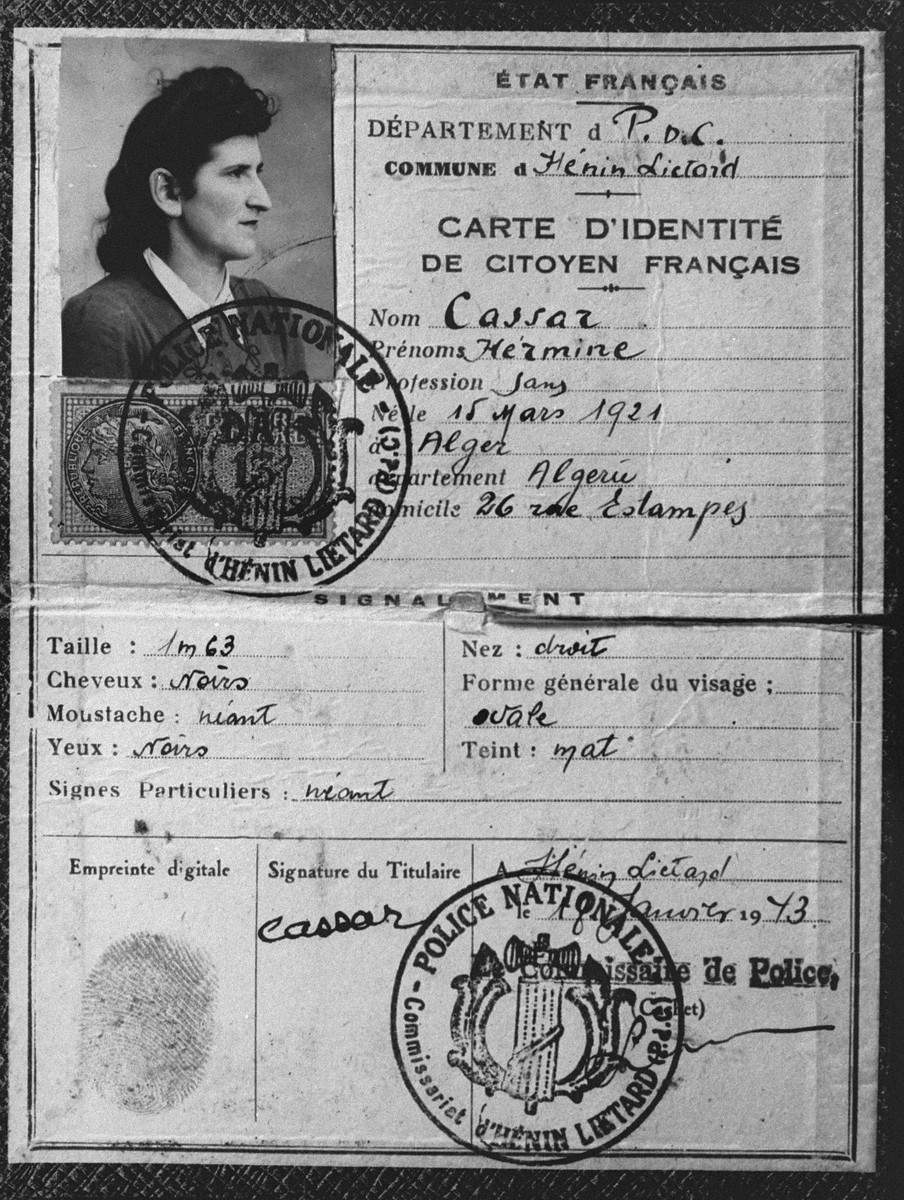 ÉTAT FRANÇAIS
DÉPARTEMENT d P.d.C.
COMMUNE d Hénin Liétard
CARTE D'IDENTITÉ
DE CITOYEN FRANÇAIS
Nom Cassar
Prénoms Hermine
Profession Sans
Né le 15 Mars 1921
à Alger
département Algerie
Domicile 26 rue Estampes
POLICE NATIONALE
Commissariat d'HÉNIN LIÉTARD (P.d.C)
SIGNALEMENT
Taille : 1m63
Cheveux : Noirs
Moustache : néant
Yeux : Noirs
Nez : droit
Forme générale du visage ;
ovale
Teint : mat
Signes Particuliers : néant
Empreinte digitale
Signature du Titulaire
Cassar
A Hénin Liétard
le Janvier 1943
Commissaire de Police,
(Cachet)
POLICE NATIONALE
Commissariat d'HÉNIN LIÉTARD (P.d.C)